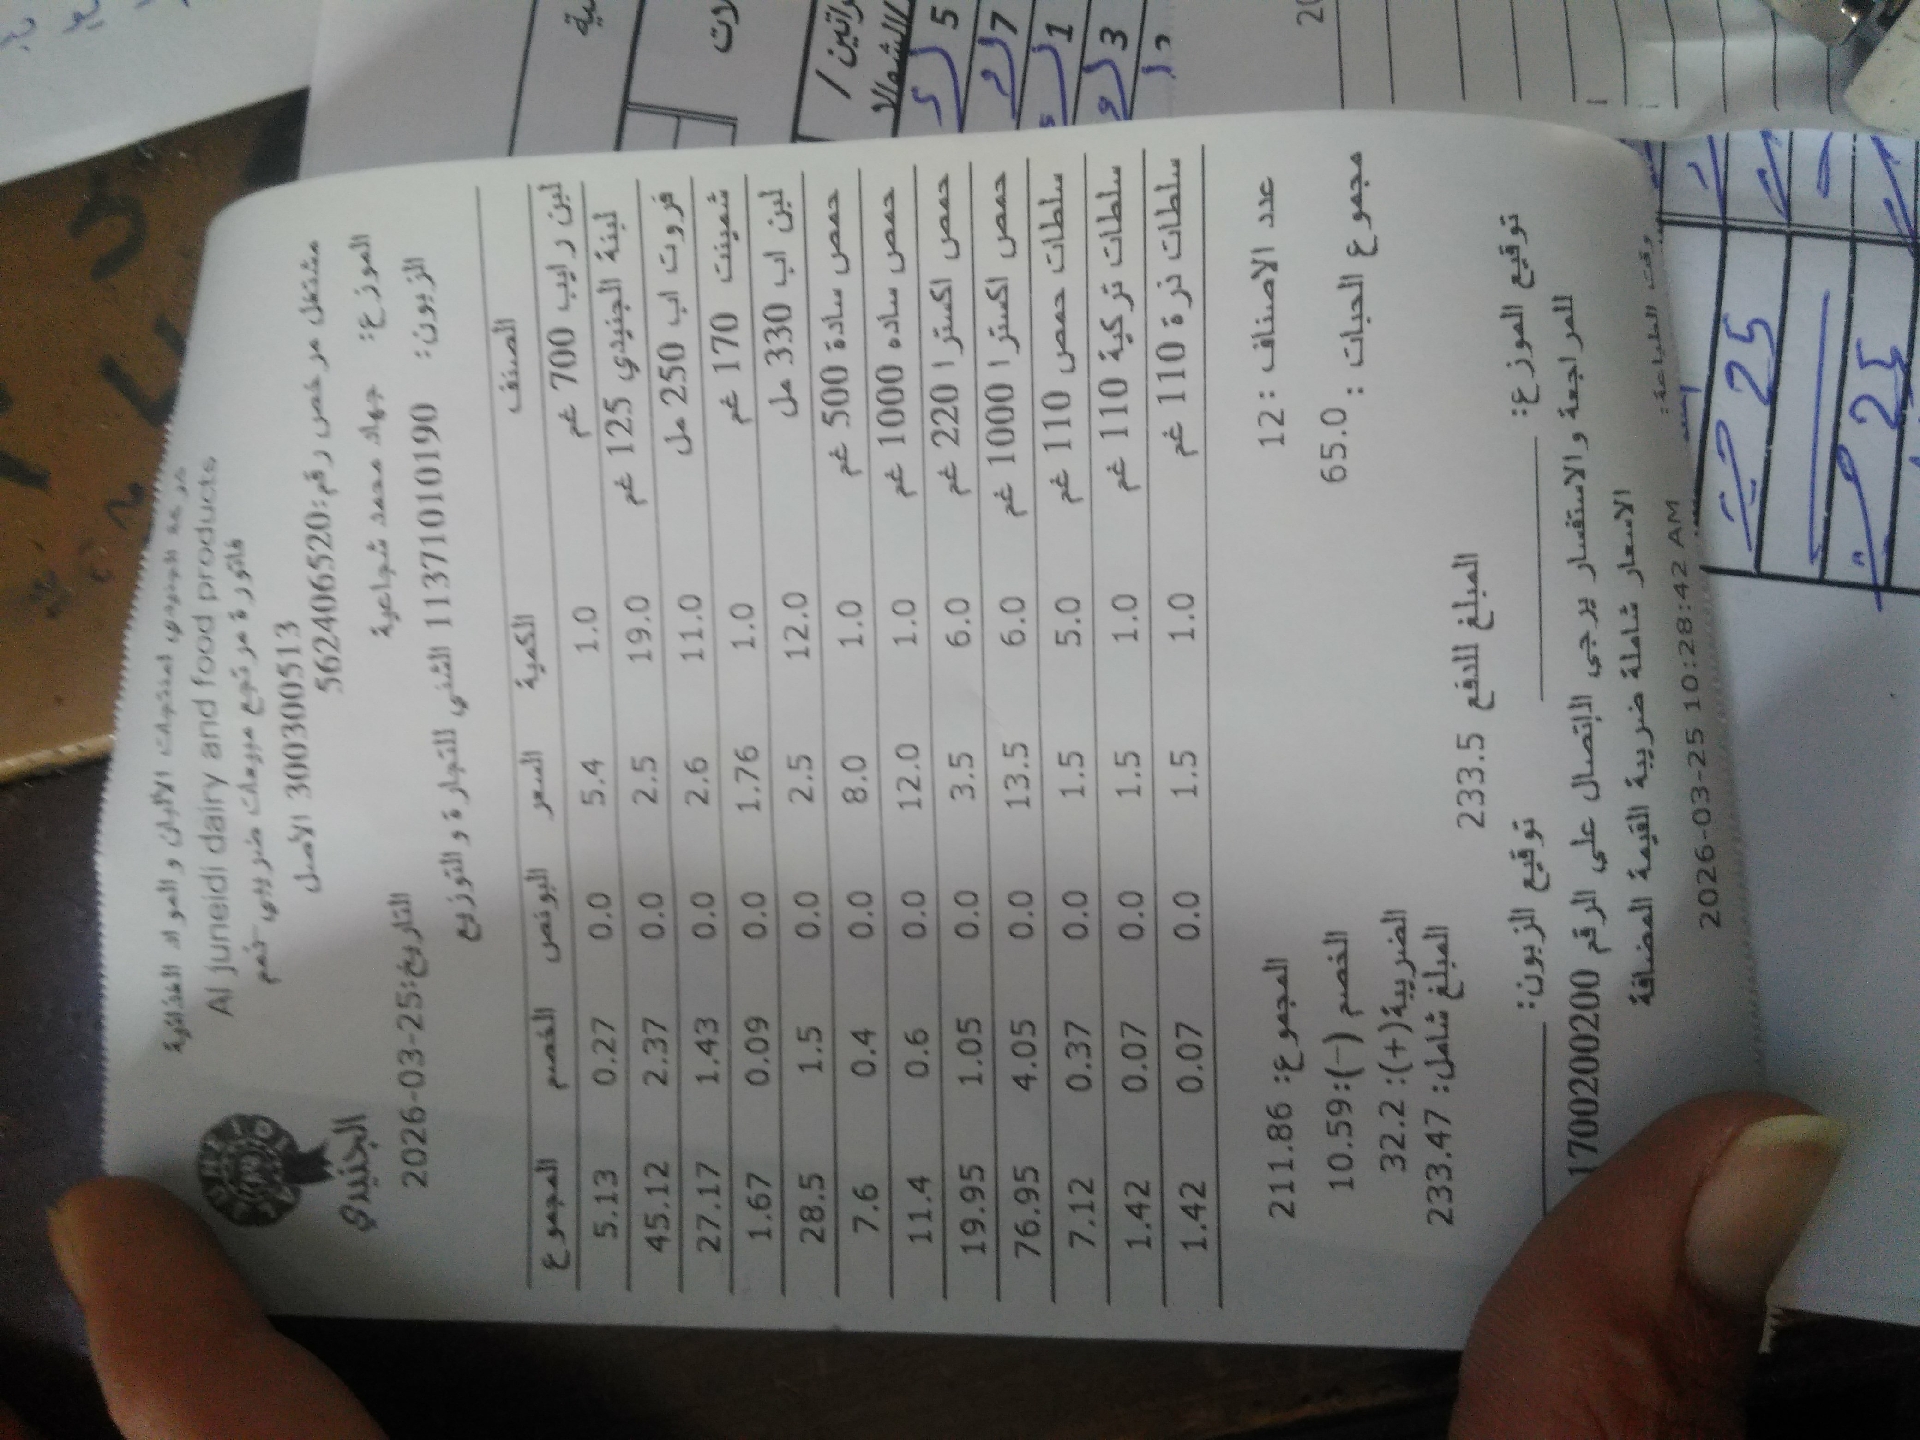 شركة الجنيدي لمنتجات الألبان و المواد الغذائية
Al juneidi dairy and food products
فاتورة مرتجع مبيعات ضريبي خصم
300300513 الأصل
مشتغل مرخص رقم:562406520
الجنيدي
الموزع: جهاد محمد شجاعية
التاريخ:2026-03-25
الزبون: 11371010190 الثني للتجارة و التوزيع
الصنف الكمية السعر البونص الخصم المجموع
لبن رايب 700 غم 1.0 5.4 0.0 0.27 5.13
لبنة الجنيدي 125 غم 19.0 2.5 0.0 2.37 45.12
فروت اب 250 مل 11.0 2.6 0.0 1.43 27.17
شمينت 170 غم 1.0 1.76 0.0 0.09 1.67
لبن اب 330 مل 12.0 2.5 0.0 1.5 28.5
حمص سادة 500 غم 1.0 8.0 0.0 0.4 7.6
حمص ساده 1000 غم 1.0 12.0 0.0 0.6 11.4
حمص اكسترا 220 غم 6.0 3.5 0.0 1.05 19.95
حمص اكسترا 1000 غم 6.0 13.5 0.0 4.05 76.95
سلطات حمص 110 غم 5.0 1.5 0.0 0.37 7.12
سلطات تركية 110 غم 1.0 1.5 0.0 0.07 1.42
سلطات ذرة 110 غم 1.0 1.5 0.0 0.07 1.42
عدد الاصناف : 12
المجموع: 211.86
مجموع الحبات : 65.0
الخصم (-):10.59
الضريبة(+): 32.2
المبلغ شامل: 233.47
المبلغ للدفع 233.5
توقيع الموزع: توقيع الزبون:
للمراجعة والاستفسار يرجى الإتصال على الرقم 1700200200
الاسعار شاملة ضريبة القيمة المضافة
وقت الطباعة: 2026-03-25 10:28:42 AM
5
7
1
3
25
25